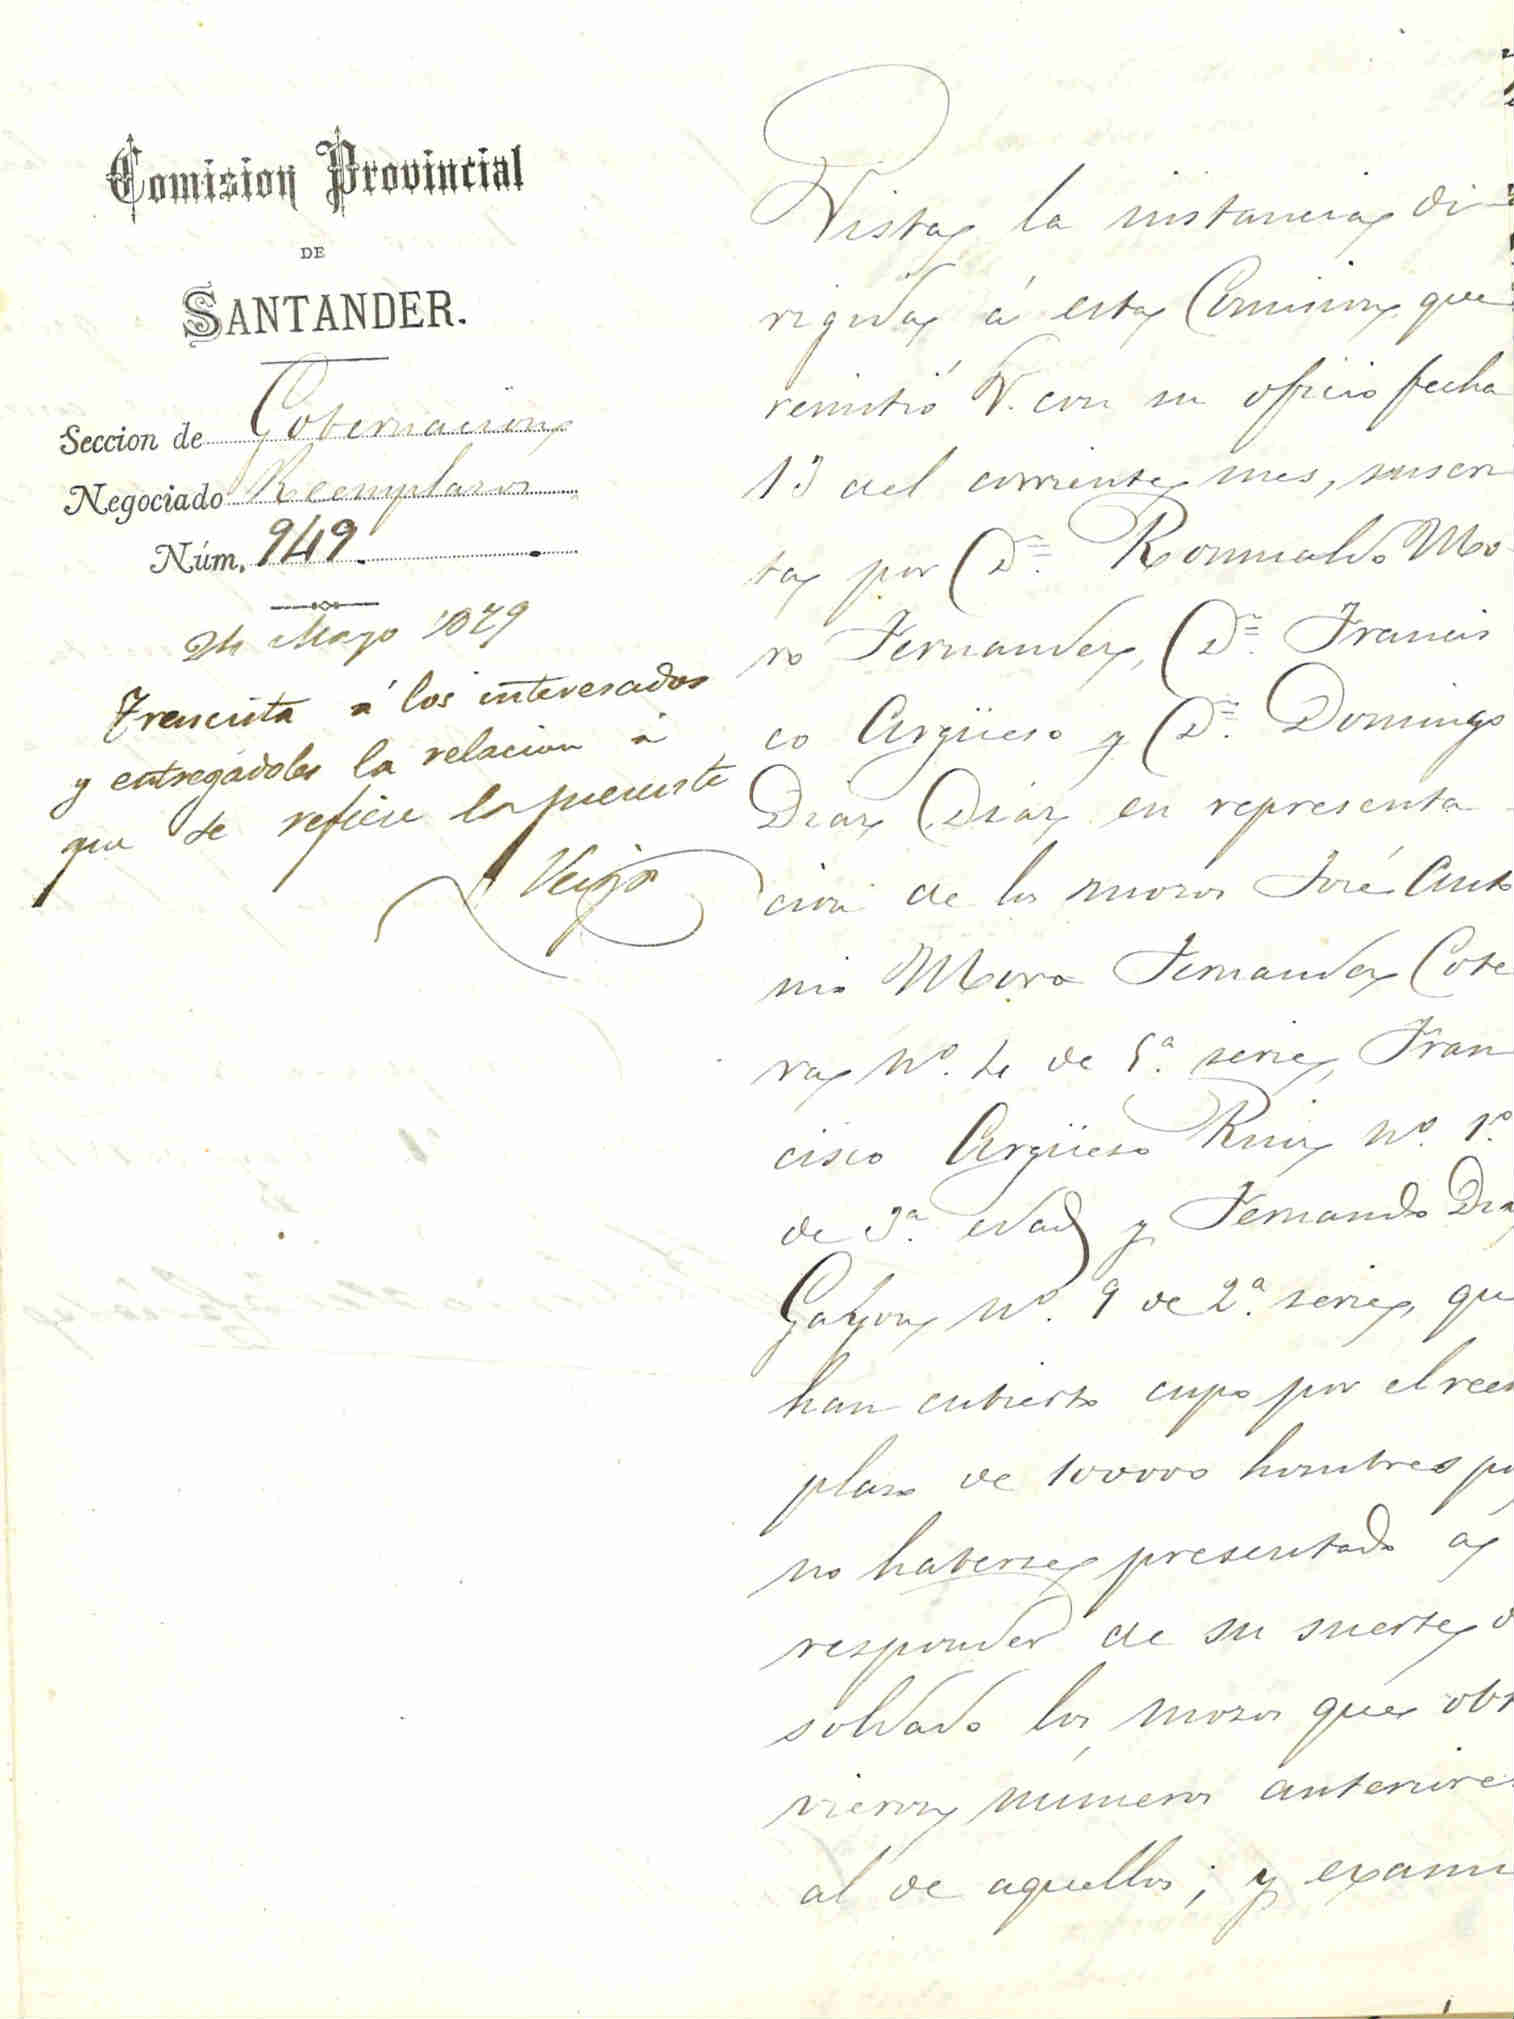 Comision Provincial
DE
SANTANDER.
Seccion de Gobernacion
Negociado Reemplazos
Núm. 949.
24 Mayo 1879
á los interesados
y entregádoles la relacion á
que se refiere la presente
Vista la instancia di-
rigida á esta Comision que
remitió V. con su oficio fecha
13 del corriente mes, suscri
ta por Dn. Romualdo Mo-
ro Fernandez, Dn. Francis
co Argüeso y Dn. Domingo
Diaz Diaz en representa-
cion de los mozos José Anto
nio Moro Fernandez Cote
ra Nº. 4 de 5ª. serie, Fran
cisco Argüeso Ruiz Nº. 1º.
de 3ª. edad y Fernando Dia
Gayon Nº. 9 de 2ª. serie, qu
han cubierto cupo por el reem
plazo de 100000 hombres po
no haberse presentado á
responder de su suerte d
soldado los mozos que obt
vieron números anteriore
al de aquellos; y exami